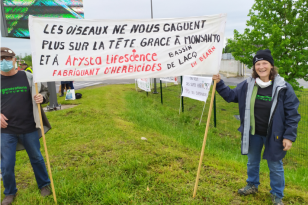 LES OISEAUX NE NOUS CAGUENT
PLUS SUR LA TÊTE GRACE À MONSANTO
ET À Arysta LifeScience BASSIN
FABRIQUANT D'HERBICIDES DE LACQ EN BÉARN